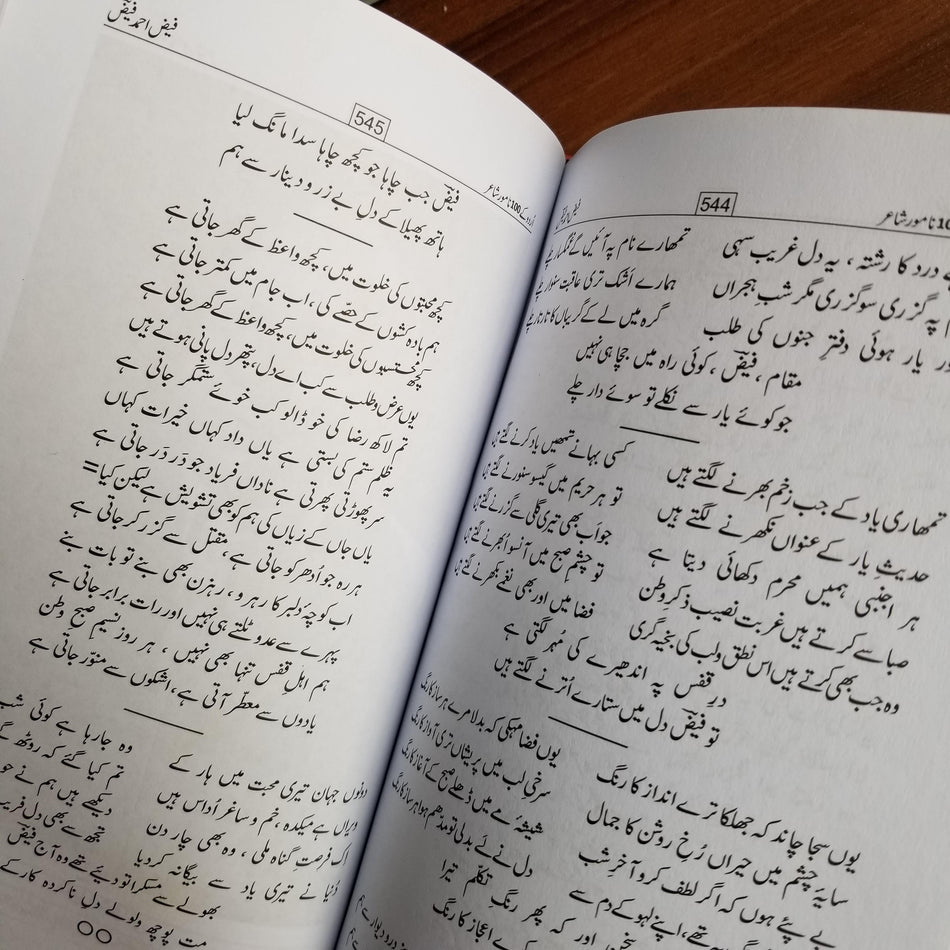 544
نامور شاعر
درد کا رشتہ ، یہ دل غریب سہی
تمھارے نام پہ آئیں گے غمگسار چلے
پہ گزری سو گزری مگر شبِ ہجراں
ہمارے اشک تری عاقبت سنوار چلے
یار ہوئی دفترِ جنوں کی طلب
گرہ میں لے کے گریباں کا تار تار چلے
مقام ، فیضؔ ، کوئی راہ میں جچا ہی نہیں
جو کوئے یار سے نکلے تو سوئے دار چلے
تمھاری یاد کے جب زخم بھرنے لگتے ہیں
کسی بہانے تمھیں یاد کرنے لگتے ہیں
حدیثِ یار کے عنواں نکھرنے لگتے ہیں
تو ہر حریم میں گیسو سنورنے لگتے ہیں
ہر اجنبی ہمیں محرم دکھائی دیتا ہے
جو اب بھی تیری گلی سے گزرنے لگتے ہیں
صبا سے کرتے ہیں غربت نصیب ذکرِ وطن
تو چشمِ صبح میں آنسو اُبھرنے لگتے ہیں
وہ جب بھی کرتے ہیں اس نطق و لب کی بخیہ گری
فضا میں اور بھی نغمے بکھرنے لگتے ہیں
درِ قفس پہ اندھیرے کی مُہر لگتی ہے
تو فیضؔ دل میں ستارے اُترنے لگتے ہیں
یوں سجا چاند کہ جھلکا ترے انداز کا رنگ
یوں فضا مہکی کہ بدلا مرے ہمراز کا رنگ
سایۂ چشم میں حیراں رُخِ روشن کا جمال
سرخیِ لب میں پریشاں تری آواز کا رنگ
بے پئے ہوں کہ اگر لطف کرو آخرِ شب
شیشۂ مے میں ڈھلے صبح کے آغاز کا رنگ
تھے، اپنے لہو کے دم سے
دل نے لے بدلی تو مدھم ہوا ہر ساز کا رنگ
اور کہ پھر رنگِ تکلّم تیرا
اعجاز کا رنگ
فیض احمد فیضؔ
545
اُردو کے 100 نامور شاعر
فیضؔ جب چاہا جو کچھ چاہا سدا مانگ لیا
ہاتھ پھیلا کے دلِ بے زر و دینار سے ہم
کچھ محبتوں کی خلوت میں، کچھ واعظ کے گھر جاتی ہے
ہم بادہ کشوں کے حصّے کی ، اب جام میں کمتر جاتی ہے
کچھ محتسبوں کی خلوت میں، کچھ واعظ کے گھر جاتی ہے
یوں عرض و طلب سے کب اے دل، پتھر دل پانی ہوتے ہیں
تم لاکھ رضا کی خو ڈالو کب خوئے ستمگر جاتی ہے
یہ ظلم ستم کی بستی ہے یاں داد کہاں خیرات کہاں
سر پھوڑتی پھرتی ہے ناداں فریاد جو در در جاتی ہے
یاں جاں کے زیاں کی ہم کو بھی تشویش ہے لیکن کیا =
ہر رہ جو اُدھر کو جاتی ہے ، مقتل سے گزر کر جاتی ہے
اب کوچۂ دلبر کا رہرو ، رہزن بھی بنے تو بات بنے
پہرے سے عدو ٹلتے ہی نہیں اور رات برابر جاتی ہے
ہم اہلِ قفس تنہا بھی نہیں ، ہر روز نسیمِ صبحِ وطن
یادوں سے معطّر آتی ہے، اشکوں سے منوّر جاتی ہے
دونوں جہان تیری محبت میں ہار کے
وہ جا رہا ہے کوئی شب
ویراں ہے میکدہ ، خم و ساغر اُداس ہیں
تم کیا گئے کہ روٹھ گئے
اک فرصتِ گناہ ملی ، وہ بھی چار دن
دیکھے ہیں ہم نے
دُنیا نے تیری یاد سے بیگانہ کردیا
تجھ سے بھی دل فریب
بھولے سے مسکرا تو دیئے تھے وہ آج فیضؔ
مت پوچھ ولولے دلِ ناکردہ کار کے